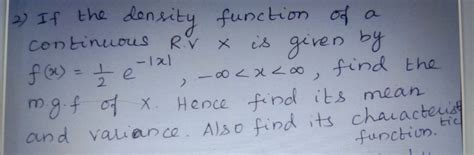 2) If the density function of a
continuous R.V X is given by
f(x) = 1/2 e^-|x|, -∞<x<∞, find the
m.g.f of X. Hence find its mean
and variance. Also find its characteristic
function.